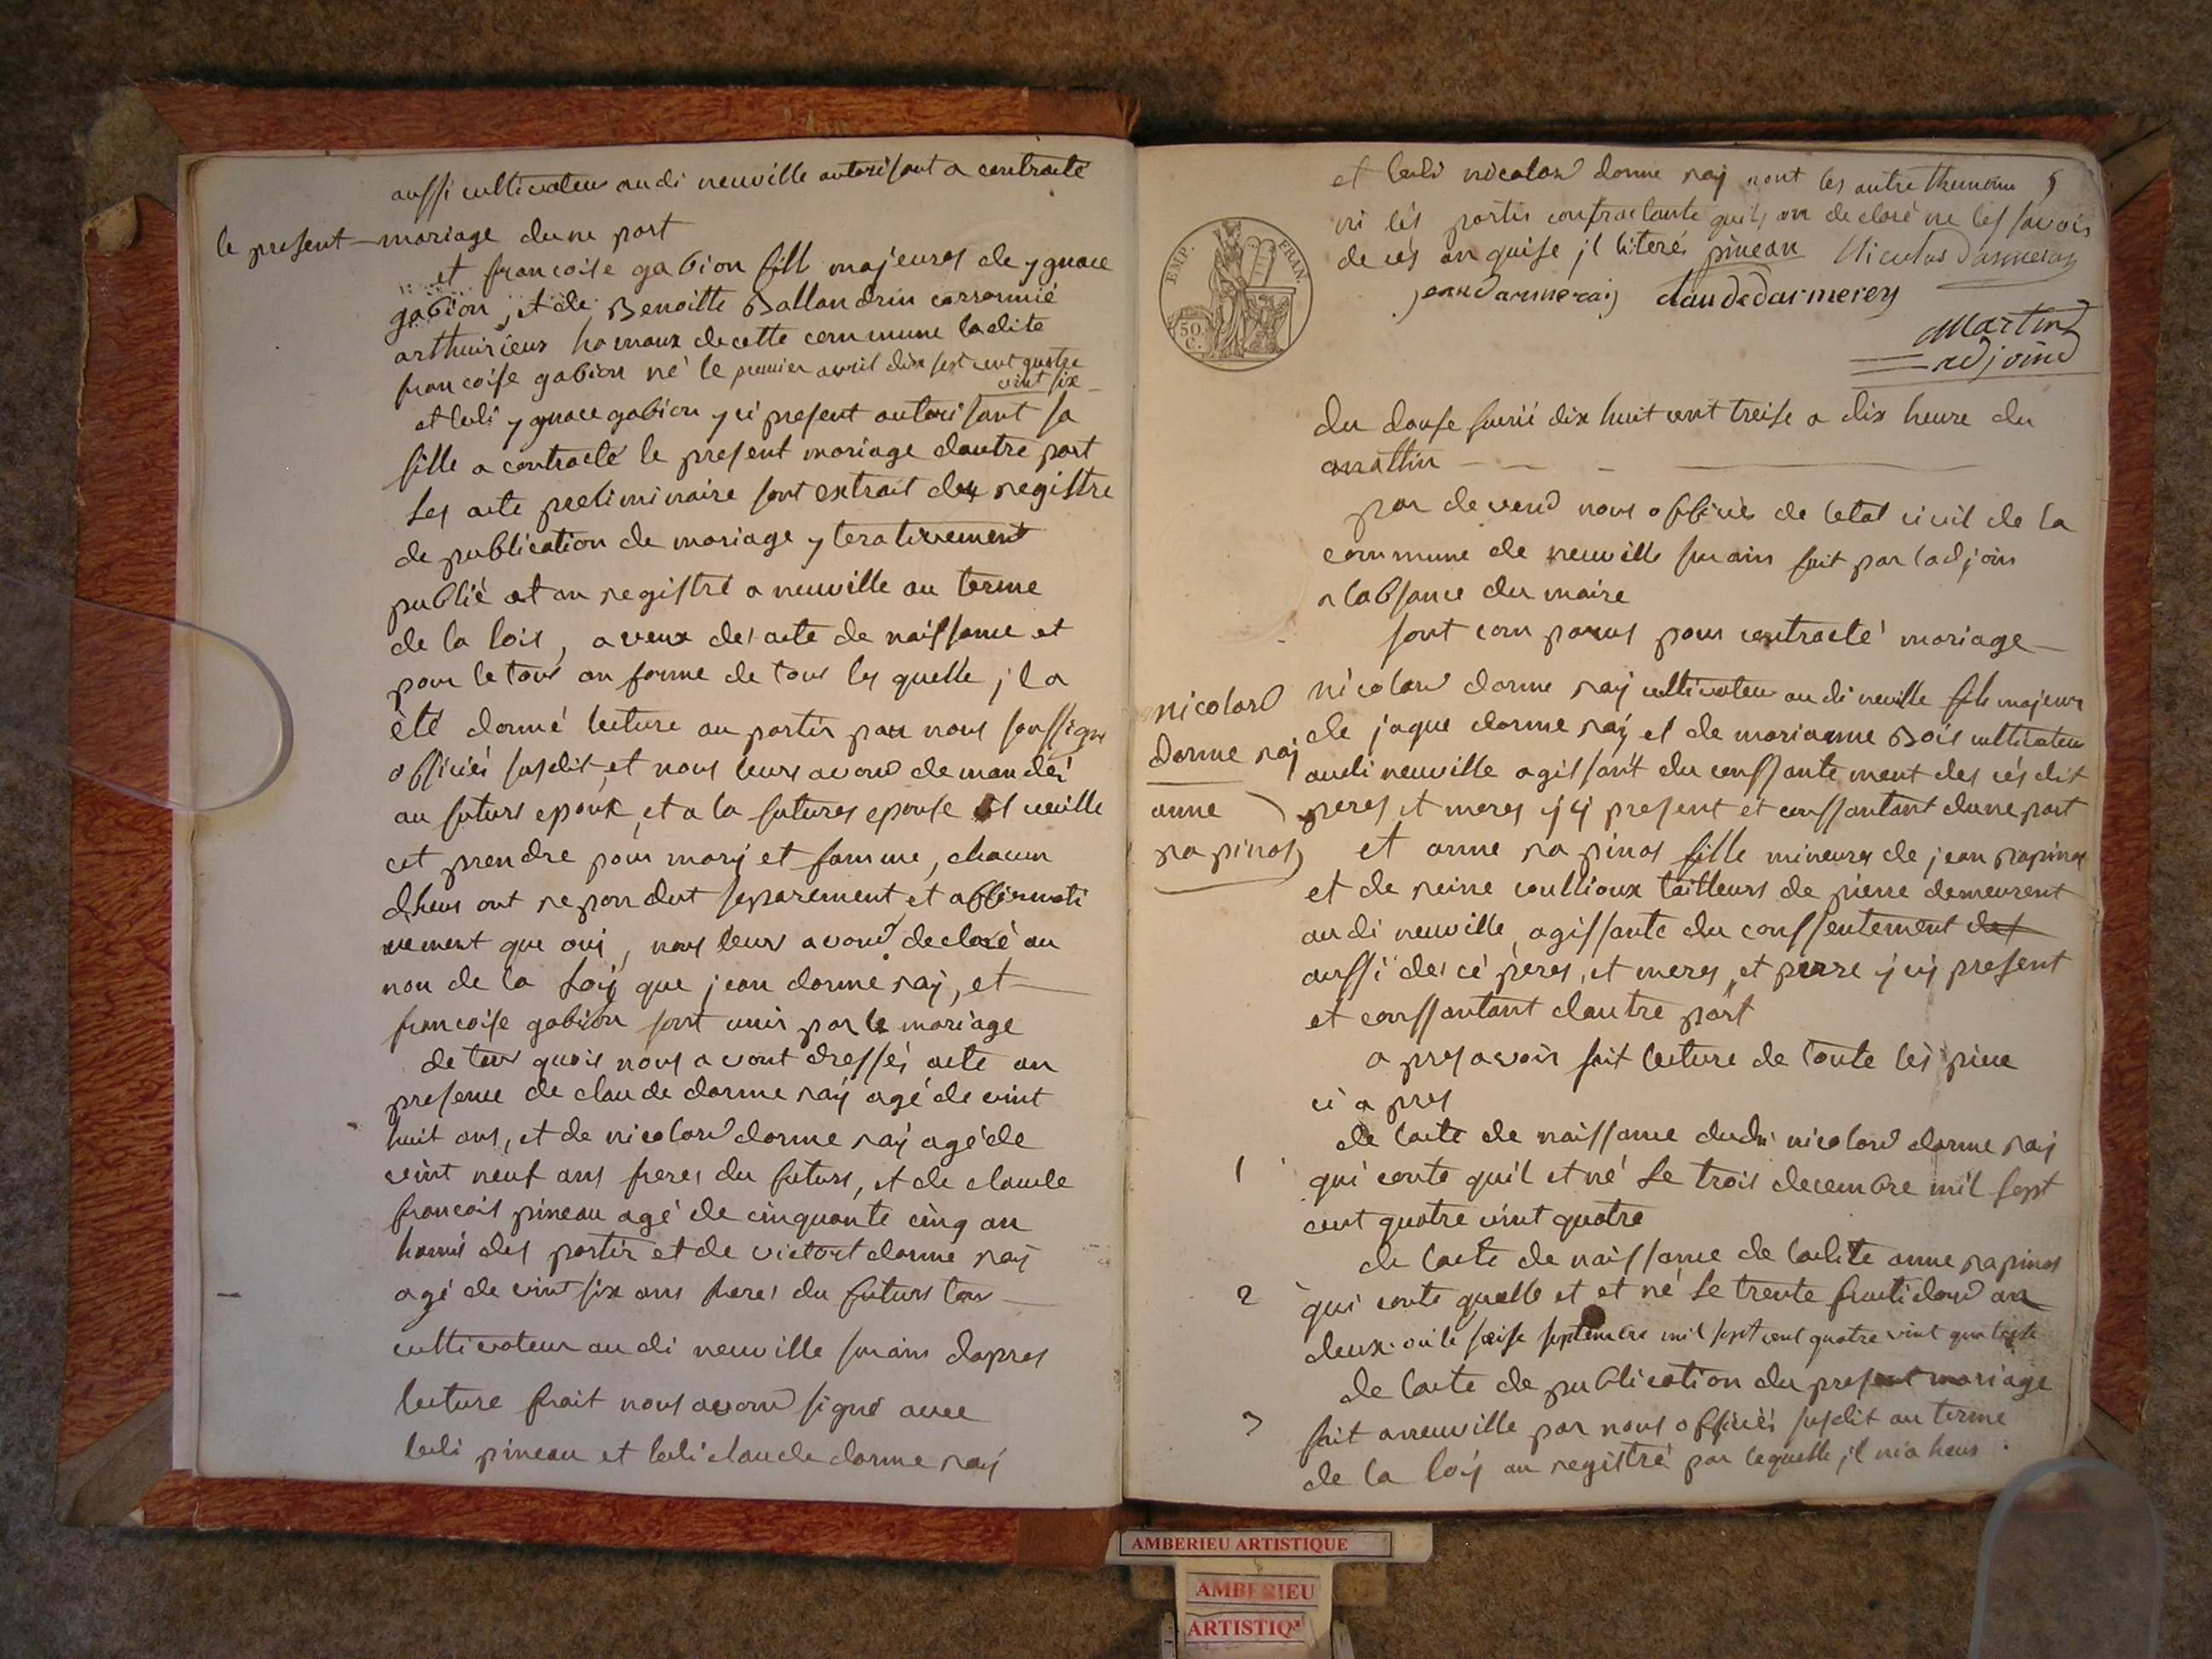 aussi cultivateur audi neuville autorisant a contracté
le present mariage dune part
et francoise gabion fill majeures de ygnace
gabion, et de Benoitte Ballandrin
de cette commune ladite
francoise gabion né le premier avril dix sept cent quatre
vint six
et ledi ygnace gabion yci present autorisant sa
fille a contracté le present mariage dautre part
Les acte preliminaire sont extrait des registre
de publication de mariage yterativement
publié et an registré a neuville au terme
de la lois, aveux des acte de naissance et
pour le tout an forme de tous les quelle, jl a
èté donné lecture au partis par nous soussigne
officiés susdit, et nous leurs avond demandéi
au futurs epoux, et a la futures epouse sil veuille
cet prendre pour mary et famme, chacun
dheus ont repondut separement et affirmati
vement que ouj, nous leurs avond declaré au
non de la Loij que jean darme raij, et
francoise gabion sont unis par le mariage
de tous quois nous avont dressés acte an
presence de claude darme raij agé de vint
huit ans, et de nicolard darme raij agé de
veint neuf ans freres du futurs, et de claude
francois pineau agé de cinquante cinq an
hamis des partis et de victort darme raij
agé de vint six ans freres du futurs tous
cultivateur audi neuville surain dapres
lecture frait nous avond signé avec
ledi pineau et ledi claude darme raij
et ledi nicolard darme raij nont les autre themoins
ni lés partis contractante quils on declaré ne les savois
de cés anquise jl literés pineau Nicolas Darmeray
jean darmeraij claude darmerey
Martin
adjoind
EMP. FRAN.
50 C.
du douse fevrié dix huit cent treise a dix heure du
mattin
par devend nous officiés de letat civil de la
commune de neuville surain fait par ladjoin
a labsance du maire
sont comparus pour contracté mariage
nicolard
darme raj
anne
rapinos
nicolard darme raij cultivateur audi neuville fils majeur
de jaque darme raij et de marianne Bois cultivateur
audi neuville agissant du conssantement des cés dit
peres et meres ycij present et conssantant dune part
et anne rapinos fille mineures de jean rapinos
et de reine coullioux tailleurs de pierre demeurent
audi neuville, agissante du conssentement des
aussi des cé peres, et meres, et pierre ycij present
et conssantant dautre part
apres avoir fait lecture de toute lés piece
ci apres
1
de lacte de naissance dudi nicolard darme raij
qui conte quil et né Le trois decembre mil sept
cent quatre vint quatre
2
de lacte de naissance de ladite anne rapinos
qui conte quelle et et né Le trente fructidord an
deux ou le seise septembre mil sept cent quatre vint quatorse
3
de lacte de publication du present mariage
fait aneuville par nous officiés susdit au terme
de la loij an registré par lequelle jl nia heus
AMBERIEU ARTISTIQUE
AMBERIEU
ARTISTIQ